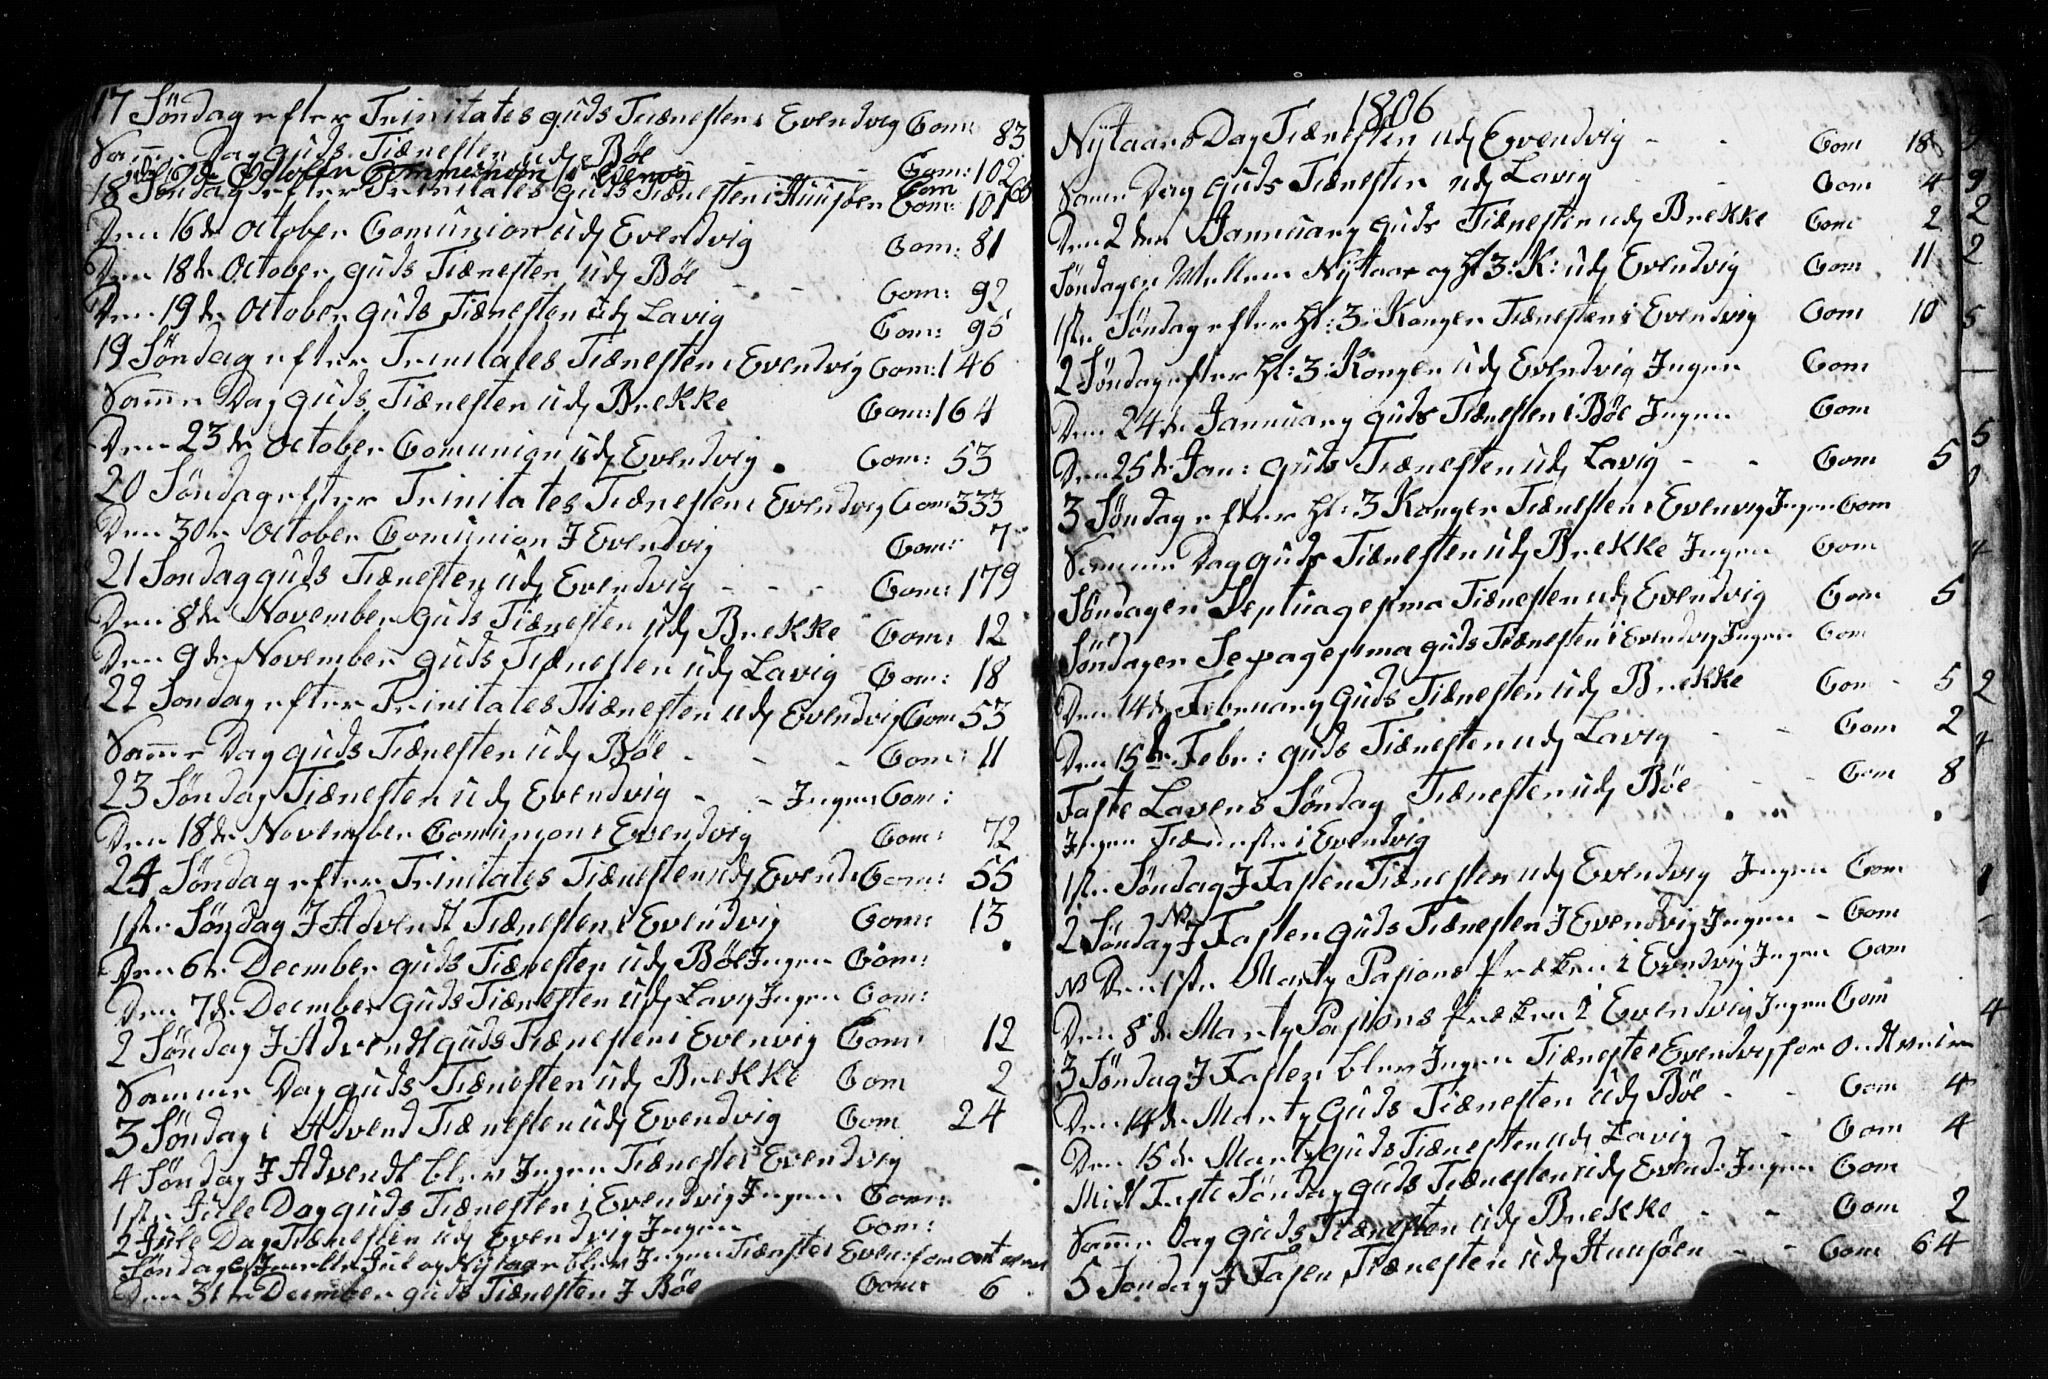 17 Søndag efter Trinitates Guds Tiænesten i Evendvig Com: 83
Samme Dag Guds Tiænesten udj Böe Com: 102
October Communion i Evenvig Com 60
18 Søndag efter Trinitates Guds Tiænesten i Huusöen Com: 101
Den 16de October Comunion udj Evendvig Com: 81
Den 18de October Guds Tiænesten udj Böe - - Com: 92
Den 19de October Guds Tiænesten udj Lavig Com: 95
19 Søndag efter Trinitates Tiænesten i Evendvig Com: 146
Samme Dag Guds Tiænesten udj Brekke Com: 164
Den 23de October Comunion udj Evendvig Com: 53
20 Søndag efter Trinitates Tiænesten i Evendvig Com 333
Den 30te October Comunion J Evendvig Com: 7
21 Søndag Guds Tiænesten udj Evendvig - - - Com: 179
Den 8de November Guds Tiænesten udj Brekke Com: 12
Den 9de November Guds Tiænesten udj Lavig Com: 18
22 Søndag efter Trinitates Tiænesten udj Evendvig Com 53
Samme Dag Guds Tiænesten udj Böe - - - Com: 11
23 Søndag Tiænesten udj Evendvig - - Ingen Com:
Den 18de November Comunion i Evendvig Com: 72
24 Søndag efter Trinitates Tiænesten udj Evend Com: 55
1ste Søndag J Advendt Tiænesten i Evendvig Com: 13
Den 6te December Guds Tiænesten udj Böe Ingen Com:
Den 7de December Guds Tiænesten udj Lavig Ingen Com:
2 Søndag J Advendt Guds Tiænesten i Evenvig Com: 12
Samme Dag Guds Tiænesten udj Brekke Com 2
3 Søndag i Advend Tiænesten udj Evendvig Com 24
4 Søndag J Advendt blev Ingen Tiæneste i Evendvig
1ste Jule Dag Guds Tiænesten i Evendvig Ingen Com:
2 Jule Dag Tiænesten udj Evendvig Ingen Com:
Søndagen Jmellem Jul og Nytaar blev Ingen Tiæneste i Even: for ont
Den 31te December Guds Tiænesten J Böe Com: 6
1806
Nytaars Dag Tiænesten udj Evendvig - - Com 18
Samme Dag Guds Tiænesten udj Lavig - Com 4
Den 2den Januuary Guds Tiænesten udj Brekke Com 2
Søndagen Mellem Nytaar og Hl: 3: K: udj Evendvig Com 11
1ste Søndag efter Hl: 3: Konger Tiænesten i Evendvig Com 10
2 Søndag efter Hl: 3: Konger udj Evendvig Ingen Com
Den 24de Januuary Guds Tiænesten i Böe Ingen Com
Den 25de Jan: Guds Tiænesten udj Lavig - - Com 5
3 Søndag efter Hl: 3 Konger Tiænesten i Evenvig Ingen Com
Samme Dag Guds Tiænesten udj Brekke Ingen Com
Søndagen Septuagesima Tiænesten udj Evendvig Com 5
Søndagen Sexagesima Guds Tiænesten i Evendvig Ingen Com
Den 14de February Guds Tiænesten udj Brekke Com - 5
Den 15de Febr: Guds Tiænesten udj Lavig - - Com 2
Faste Lavens Søndag Tiænesten udj Böe - - Com 8
Ingen Tiæneste i Evendvig
1ste Søndag J Fasten Tiænesten udj Evendvig Ingen Com
2 Søndag NB J Fasten Guds Tiænesten J Evendvig Ingen - Com
NB Den 1ste Marty Pasions Præken i Evendvig Ingen Com
Den 8de Marty Pasions Præken i Evendvig Ingen Com
3 Søndag J Fasten blev Ingen Tiæneste i Evendvig for ondt
Den 14de Marty Guds Tiænesten udj Böe - - Com 4
Den 15de Marty Guds Tiænesten udj Lavig - Com 4
Midt Faste Søndag Guds Tiænesten udj Evend: Ingen Com
Samme Dag Guds Tiænesten udj Brekke - - Com 2
5 Søndag J Fasten Tiænesten udj Huusöen - - Com 64